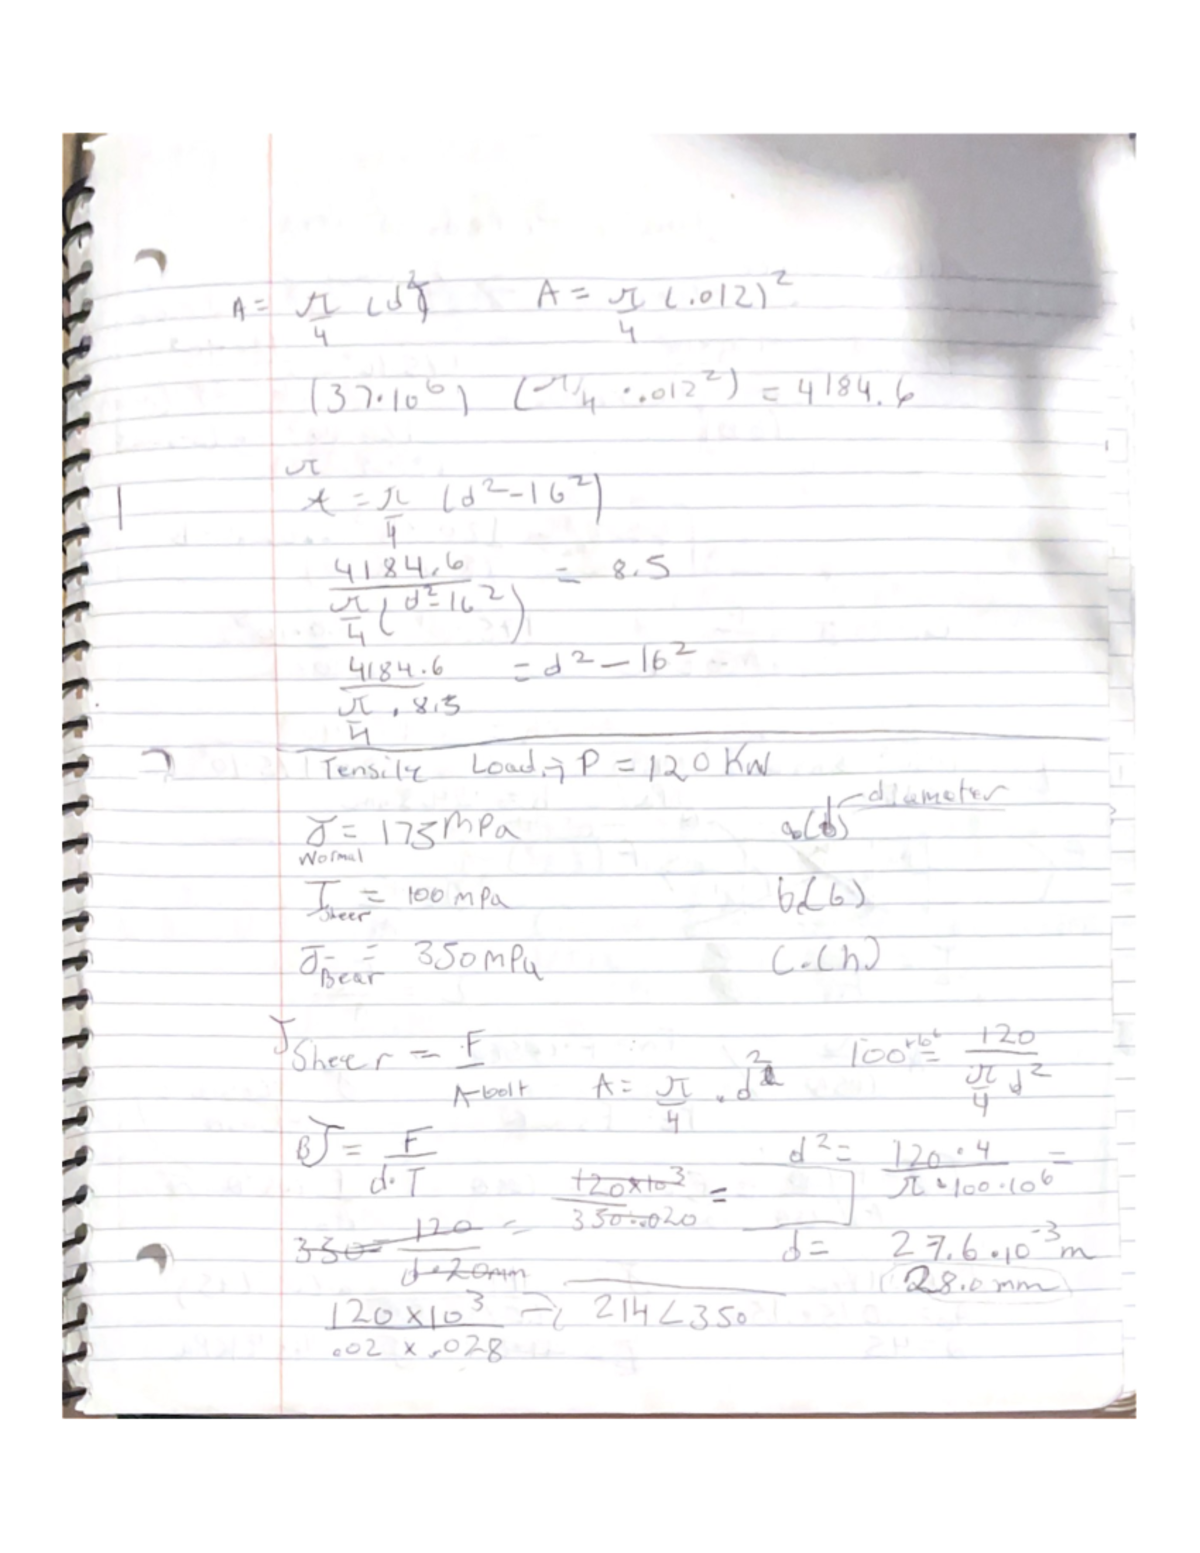 A = π/4 (d²)    A = π/4 (.012)²
(37·10⁶) (π/4 ·.012²) = 4184.6
π
A = π/4 (d²-16²)
4184.6 / π/4 (d²-16²) = 8.5
4184.6 / π/4 · 8.5 = d² - 16²
Tensile Load → P = 120 KN
σ Normal = 175 MPa    a.(d) diameter
τ sheer = 100 mPa    b.(b)
σ Bear = 350 mPa    C.(h)
τ Sheer = F / A bolt    A = π/4 · d²    100·10⁶ = 120 / π/4 d²
Bσ = F / d·T    d² = 120·4 / π·100·10⁶ =
120×10³ / 350·.020 =
350 = 120 / d·20mm =    d = 27.6·10⁻³ m
28.0 mm
120 ×10³ / .02 × .028 → 214 < 350